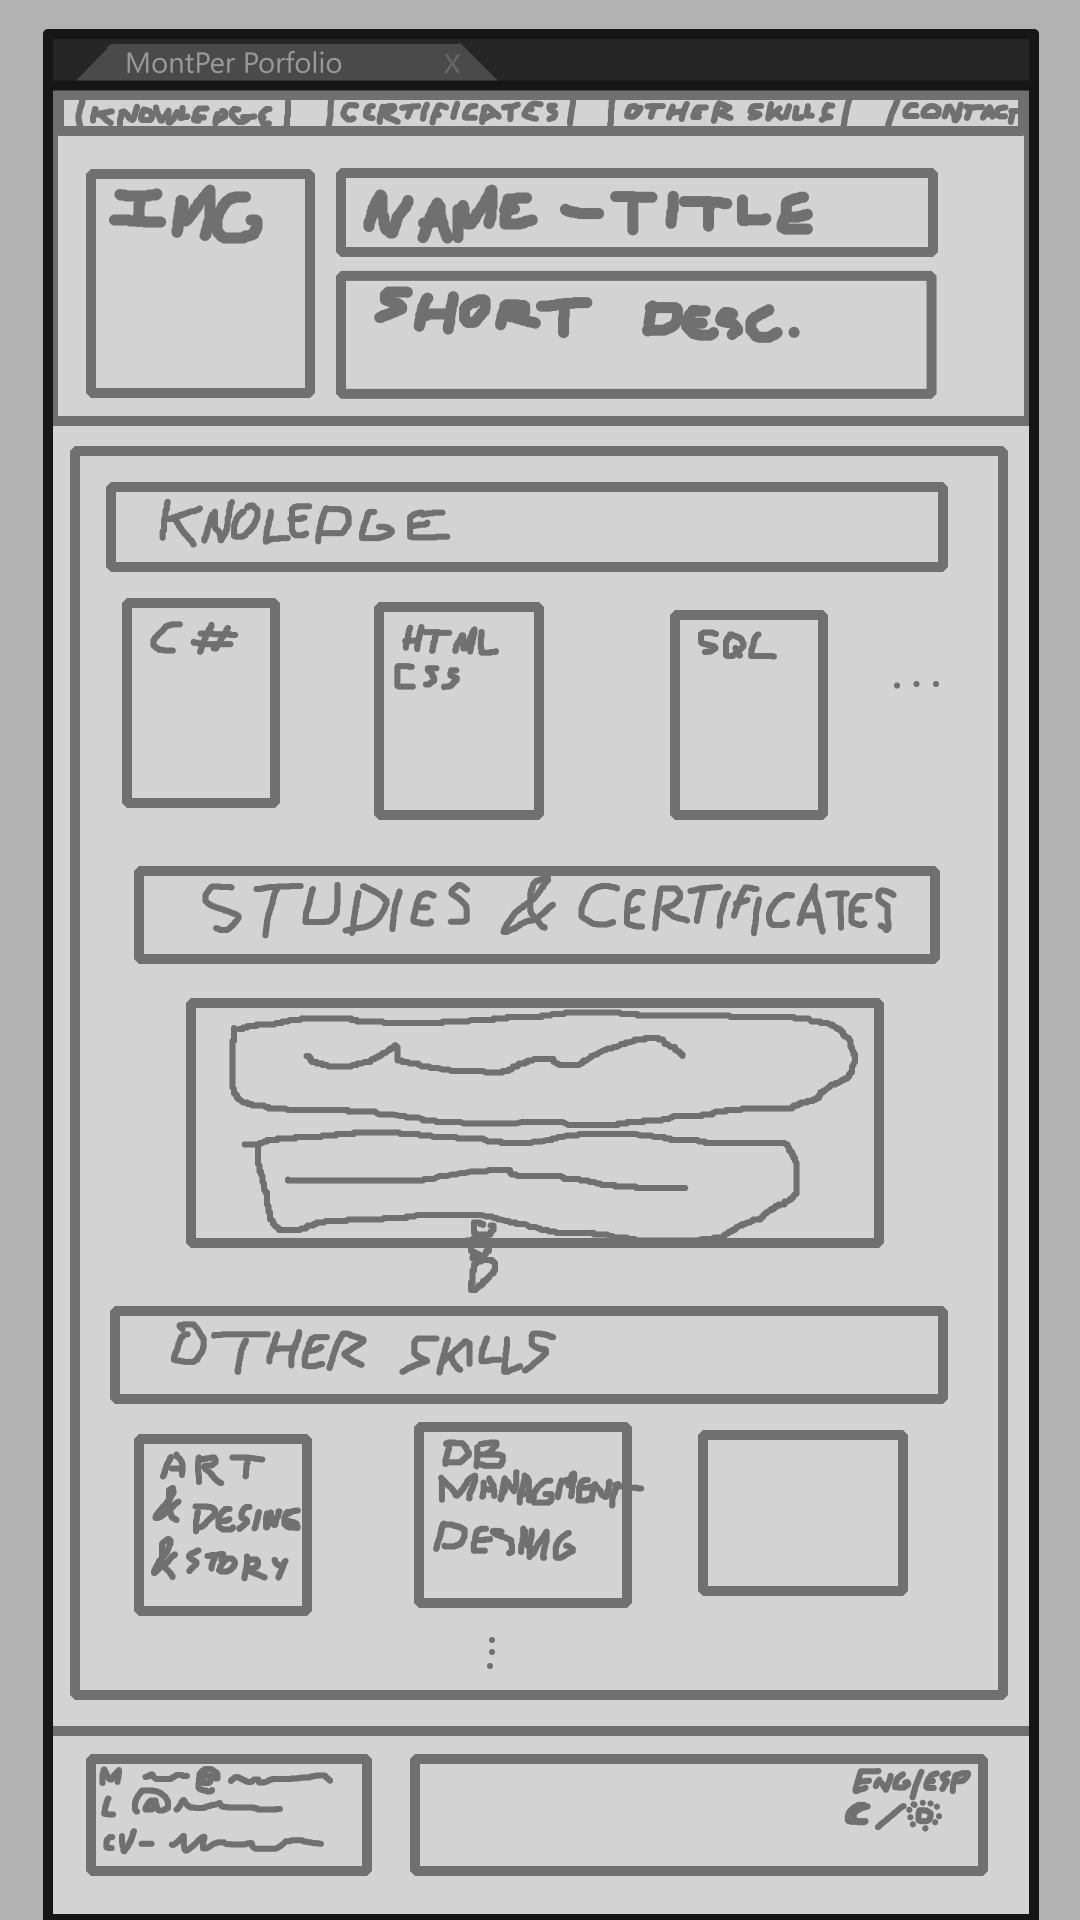 MontPer Porfolio X
KNOWLEDGE CERTIFICATES OTHER SKILLS CONTACT
IMG
NAME - TITLE
SHORT DESC.
KNOLEDGE
C #
HTML
CSS
SQL
...
STUDIES & CERTIFICATES
OTHER SKILLS
ART
& DESING
& STORY
DB
MANAGMENT
DESING
M @
L @
CV-
ENG/ESP